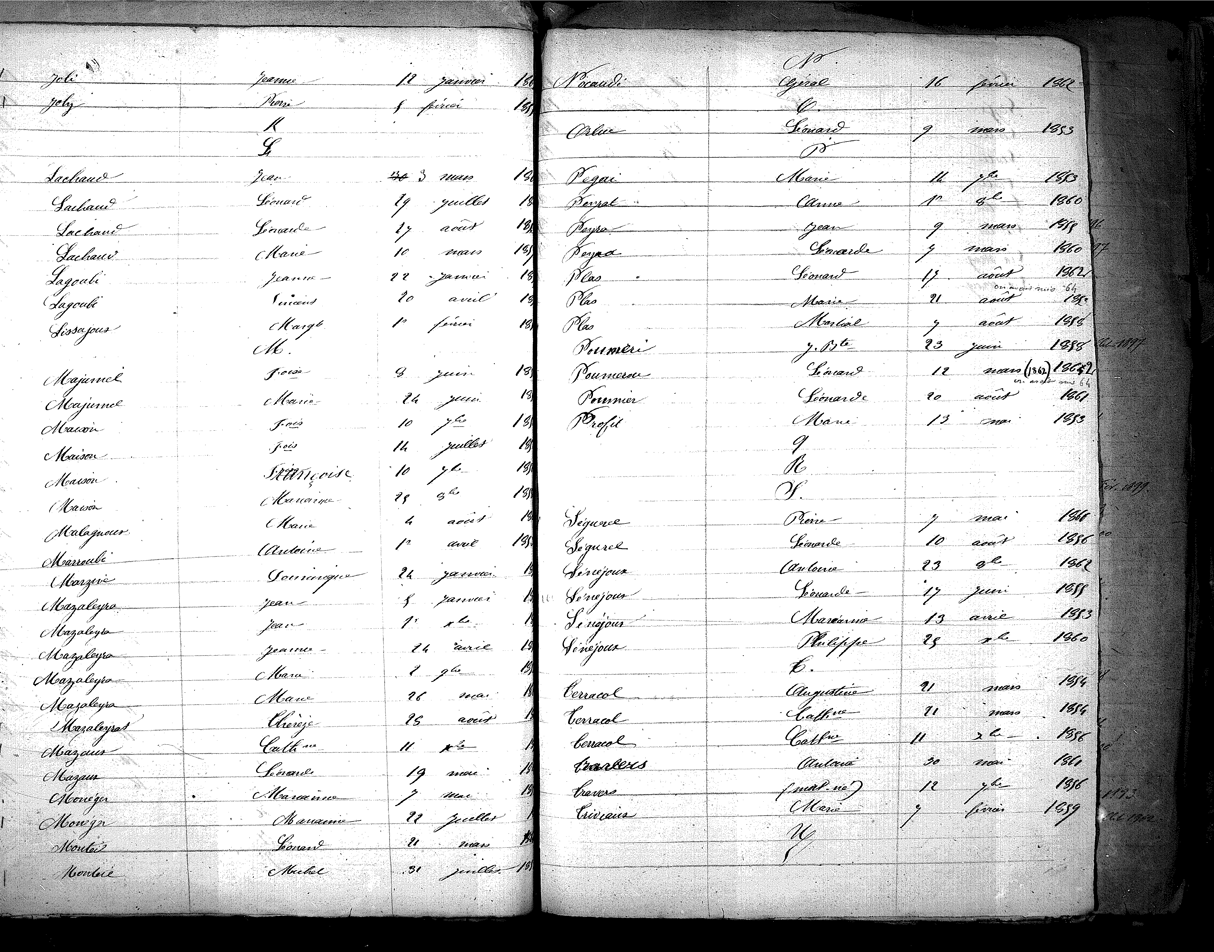 Joli Jeanne 12 janvier 18
Joly Pierre 5 février 18
K
L
Lachaud Jean 3 mars 18
Lachaud Léonard 29 juillet 18
Lachaud Léonarde 27 août 18
Lachaud Marie 10 mars 18
Lagoubi Jeanne 22 janvier 18
Lagoubi Vincent 20 avril 18
Lissajoux Margte 1r février 18
M.
Majumel fçois 8 juin 18
Majumel Marie 24 juin 18
Maison fçois 10 7bre 18
Maison fçois 14 juillet 18
Maison Françoise 10 9bre 18
Maison Marianne 25 8bre 18
Malagnoux Marie 4 août 18
Marroubi Antoine 1r avril 18
Marzeix Dominique 24 janvier 18
Mazaleyra Jean 5 janvier 18
Mazaleyra Jean 1r xbre 18
Mazaleyra Jeanne 24 avril 18
Mazaleyra Marie 2 9bre 18
Mazaleyra Marie 26 mai 18
Mazaleyrat Thérèze 25 août 18
Mazaux Cathne 11 xbre 18
Mazaux Léonarde 19 mai 18
Monéger Marianne 7 mai 18
Monéger Marianne 22 juillet 1
Monteil Léonard 21 mars 18
Monteil Michel 31 juillet 18
N.
Nocaudi Géral 16 février 1862
O.
Orluc Léonard 9 mars 1853
P.
Pegai Marie 14 7bre 1853
Peyrat Anne 1r 8bre 1860
Peyra Jean 9 mars 1858
Peyra Léonarde 7 mars 1860
Plas Léonard 15 août 1862
on avait mis 64
Plas Marie 21 août 185
Plas Martial 7 août 1858
Poumeri J. Bte 23 juin 1858
Poumerou Léonard 12 mars (1862) 1862
on avait mis 64
Poumier Léonarde 20 août 1861
Profit Marie 13 mai 1853
Q
R
S.
Ségurel Pierre 7 mai 1861
Ségurel Léonarde 10 août 1856
Sénéjoux Antoine 23 8bre 1862
Sénéjoux Léonarde 17 juin 1855
Sénéjoux Marianne 13 avril 1853
Sénéjoux Philippe 25 xbre 1860
T.
Terracol Augustine 21 mars 1854
Terracol Cathne 21 mars 1854
Terracol Cathne 11 xbre 1856
Travers Antoine 30 mai 1861
Travers (mal né) 12 7bre 1856
Trivians Marie 7 février 1859